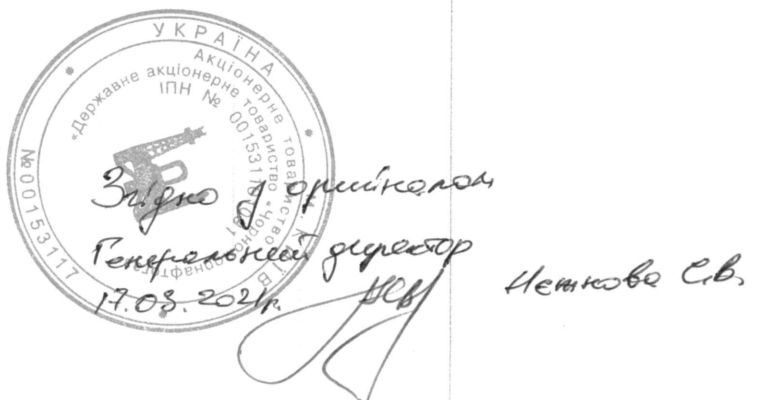 УКРАЇНА
Акціонерне товариство
м. КИЇВ
«Державне акціонерне товариство «Чорноморнафтогаз»
ІПН № 001531701091
№00153117
Згідно з оригіналом
Генеральний директор
17.03.2021р.
Нєжнова С.В.